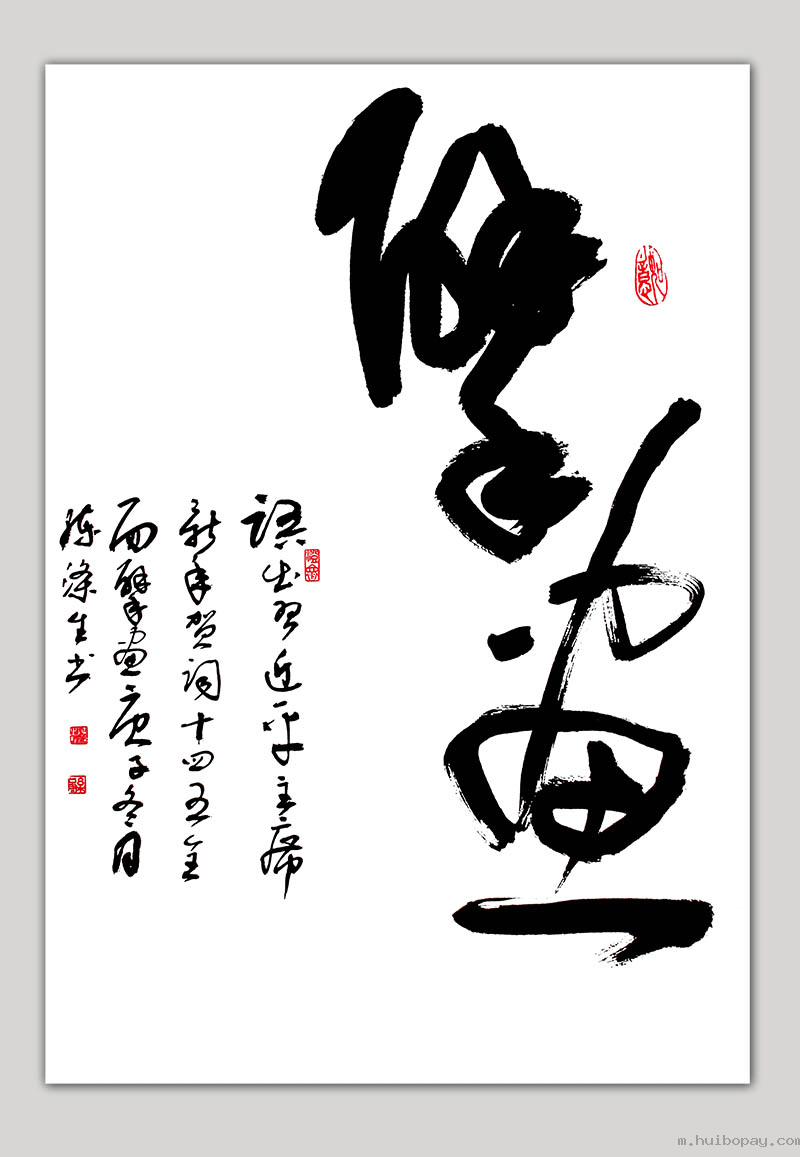 擘畫
语出习近平主席
新年贺词十四五全
面擘畫庚子冬月
陈涤生书
m.huibopay.com